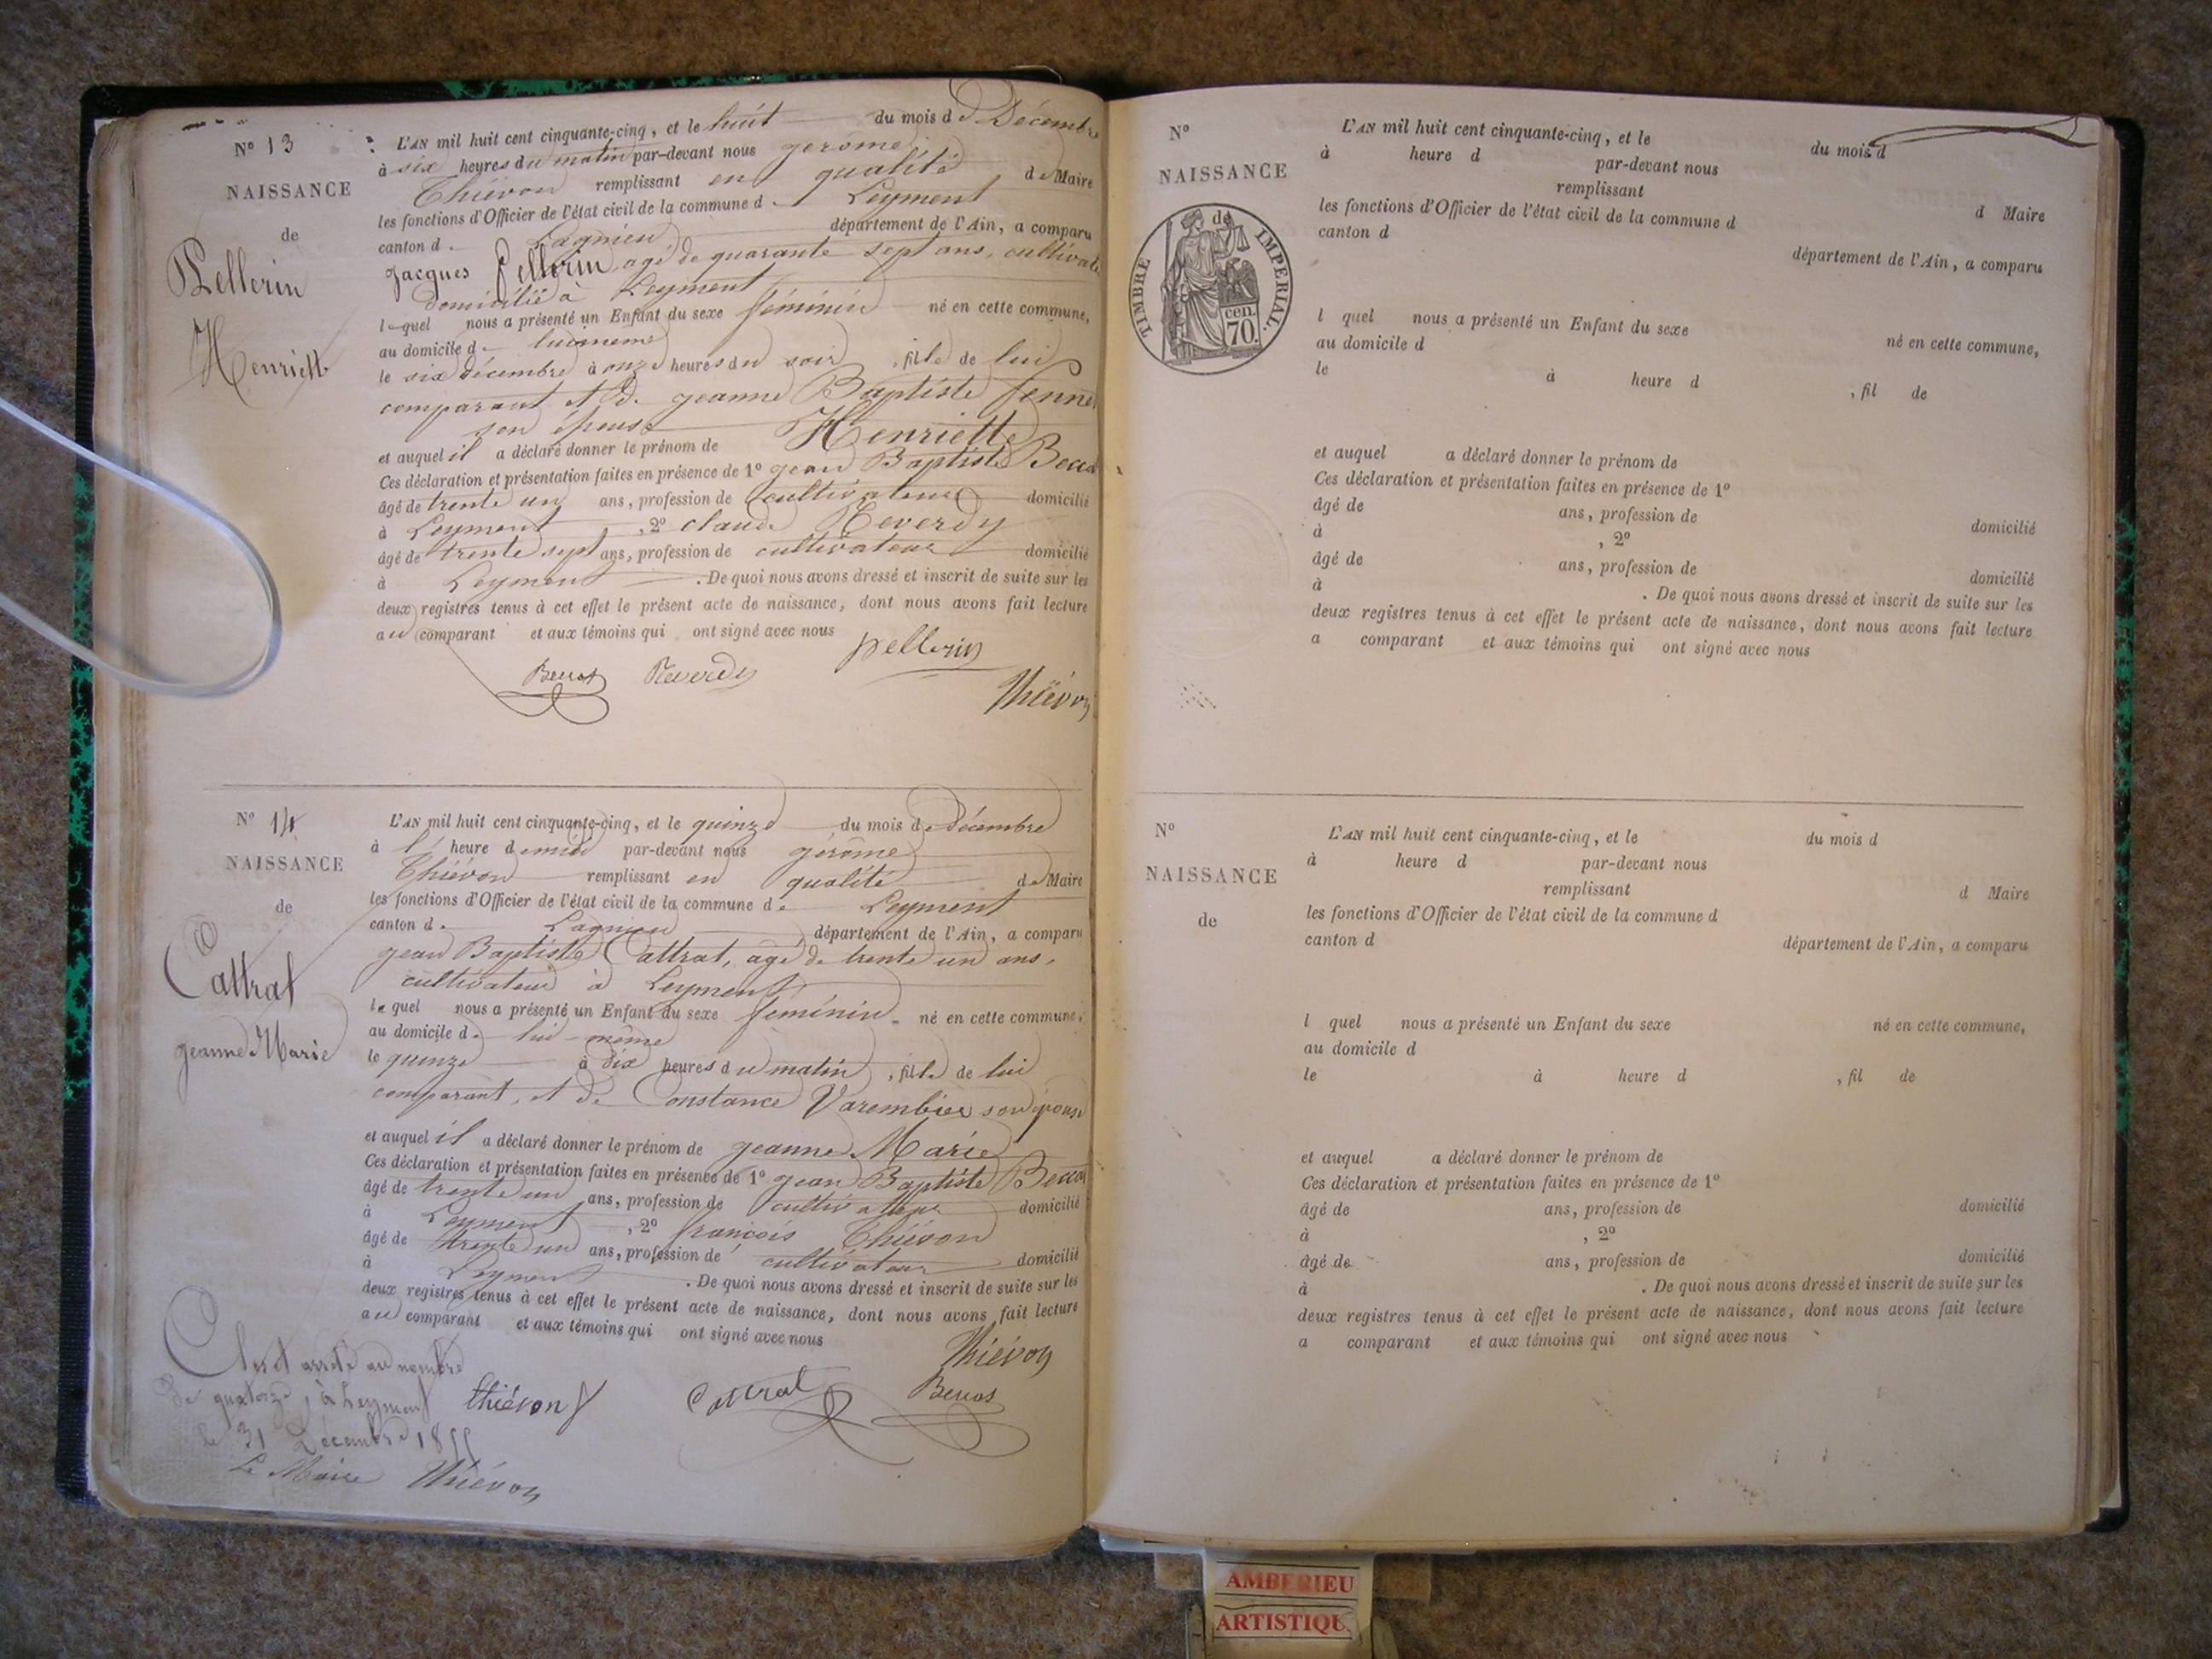 N° 13
NAISSANCE
de
Pellerin
Henriette
L'AN mil huit cent cinquante-cinq, et le huit du mois de Décembre
à six heures du matin par-devant nous gerôme
Thiévon remplissant en qualité de Maire
les fonctions d'Officier de l'état civil de la commune de Leyment
canton de Lagnieu département de l'Ain, a comparu
Jacques Pellerin agé de quarante sept ans, cultivate
domicilié à Leyment
lequel nous a présenté un Enfant du sexe féminin né en cette commune,
au domicile de lui même
le six décembre à onze heures du soir, fille de lui
comparant et de jeanne Baptiste
son épouse
et auquel il a déclaré donner le prénom de Henriette
Ces déclaration et présentation faites en présence de 1° jean Baptiste
âgé de trente un ans, profession de cultivateur domicilié
à Leyment, 2° claude Reverdy
âgé de trente sept ans, profession de cultivateur domicilié
à Leyment. De quoi nous avons dressé et inscrit de suite sur les
deux registres tenus à cet effet le présent acte de naissance, dont nous avons fait lecture
au comparant et aux témoins qui ont signé avec nous
pellerin
Reverdy
Thiévon
N° 14
NAISSANCE
de
Cattrat
jeanne Marie
L'AN mil huit cent cinquante-cinq, et le quinze du mois de décembre
à heure de midi par-devant nous gérôme
Thiévon remplissant en qualité de Maire
les fonctions d'Officier de l'état civil de la commune de Leyment
canton de Lagnieu département de l'Ain, a comparu
jean Baptiste Cattrat, agé de trente un ans,
cultivateur à Leyment
lequel nous a présenté un Enfant du sexe féminin né en cette commune,
au domicile de lui-même
le quinze à dix heures du matin, fille de lui
comparant, et de Constance Varembier son épouse
et auquel il a déclaré donner le prénom de jeanne Marie
Ces déclaration et présentation faites en présence de 1° jean Baptiste
âgé de trente un ans, profession de cultivateur domicilié
à Leyment, 2° françois Thiévon
âgé de trente un ans, profession de cultivateur domicilié
à Leyment. De quoi nous avons dressé et inscrit de suite sur les
deux registres tenus à cet effet le présent acte de naissance, dont nous avons fait lecture
au comparant et aux témoins qui ont signé avec nous
Thiévon
thiévon f Cattrat
Clos et arrêté au nombre
de quatorze, à Leyment
le 31 Décembre 1855
Le Maire Thiévon
N°
NAISSANCE
de
TIMBRE IMPERIAL.
cen.
70.
L'AN mil huit cent cinquante-cinq, et le du mois d
à heure d par-devant nous
remplissant d Maire
les fonctions d'Officier de l'état civil de la commune d
canton d département de l'Ain, a comparu
l quel nous a présenté un Enfant du sexe né en cette commune,
au domicile d
le à heure d , fil de
et auquel a déclaré donner le prénom de
Ces déclaration et présentation faites en présence de 1°
âgé de ans, profession de domicilié
à , 2°
âgé de ans, profession de domicilié
à . De quoi nous avons dressé et inscrit de suite sur les
deux registres tenus à cet effet le présent acte de naissance, dont nous avons fait lecture
a comparant et aux témoins qui ont signé avec nous
N°
NAISSANCE
de
L'AN mil huit cent cinquante-cinq, et le du mois d
à heure d par-devant nous
remplissant d Maire
les fonctions d'Officier de l'état civil de la commune d
canton d département de l'Ain, a comparu
l quel nous a présenté un Enfant du sexe né en cette commune,
au domicile d
le à heure d , fil de
et auquel a déclaré donner le prénom de
Ces déclaration et présentation faites en présence de 1°
âgé de ans, profession de domicilié
à , 2°
âgé de ans, profession de domicilié
à . De quoi nous avons dressé et inscrit de suite sur les
deux registres tenus à cet effet le présent acte de naissance, dont nous avons fait lecture
a comparant et aux témoins qui ont signé avec nous
AMBERIEU
ARTISTIQU